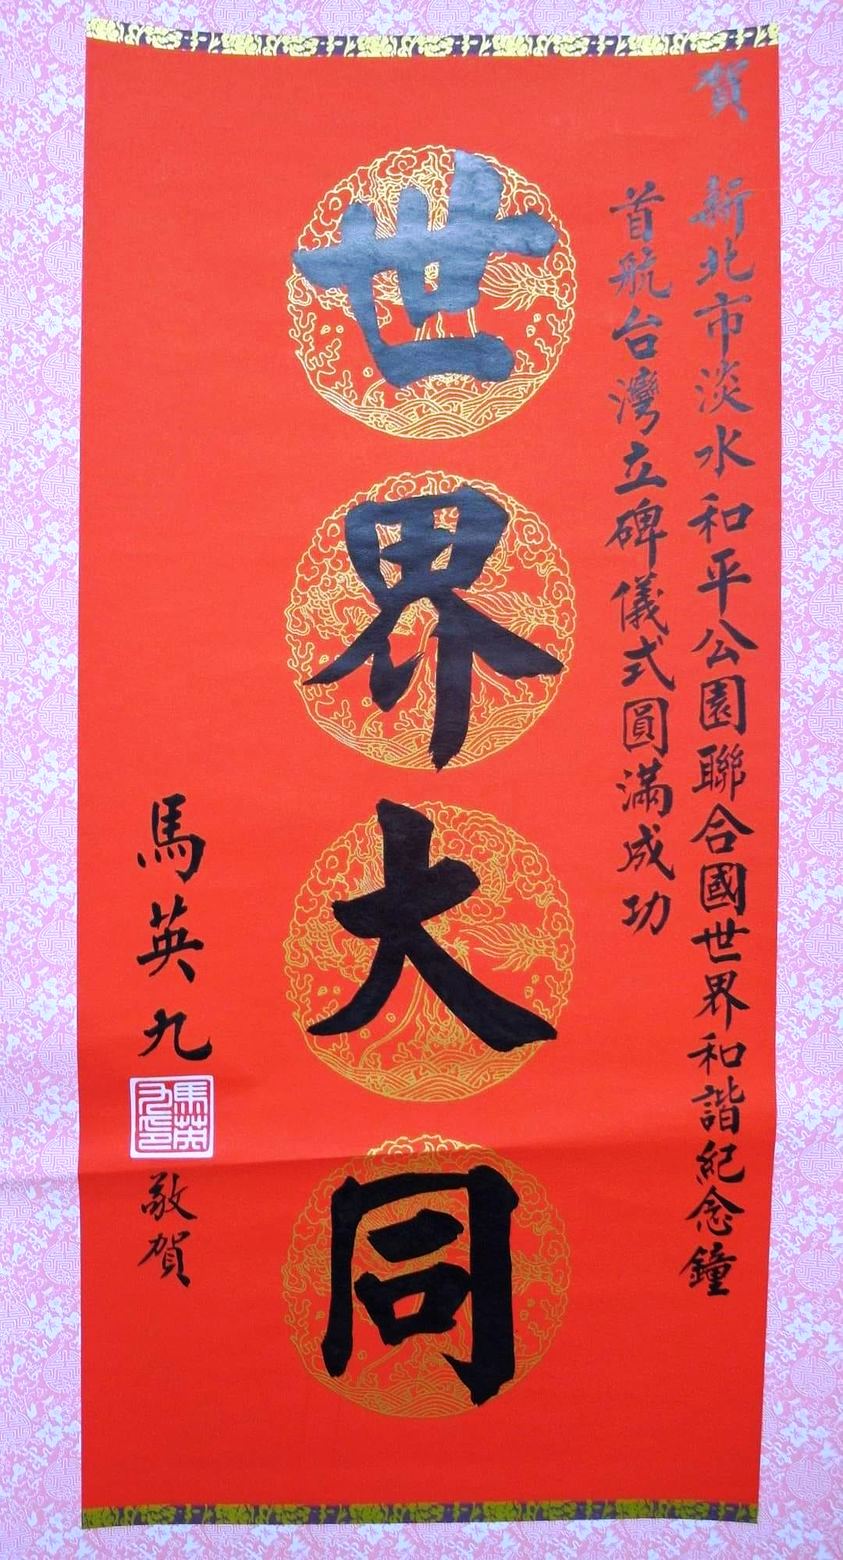 賀 新北市淡水和平公園聯合國世界和諧紀念鐘
首航台灣立碑儀式圓滿成功
世界大同
馬英九
馬英九印
敬賀